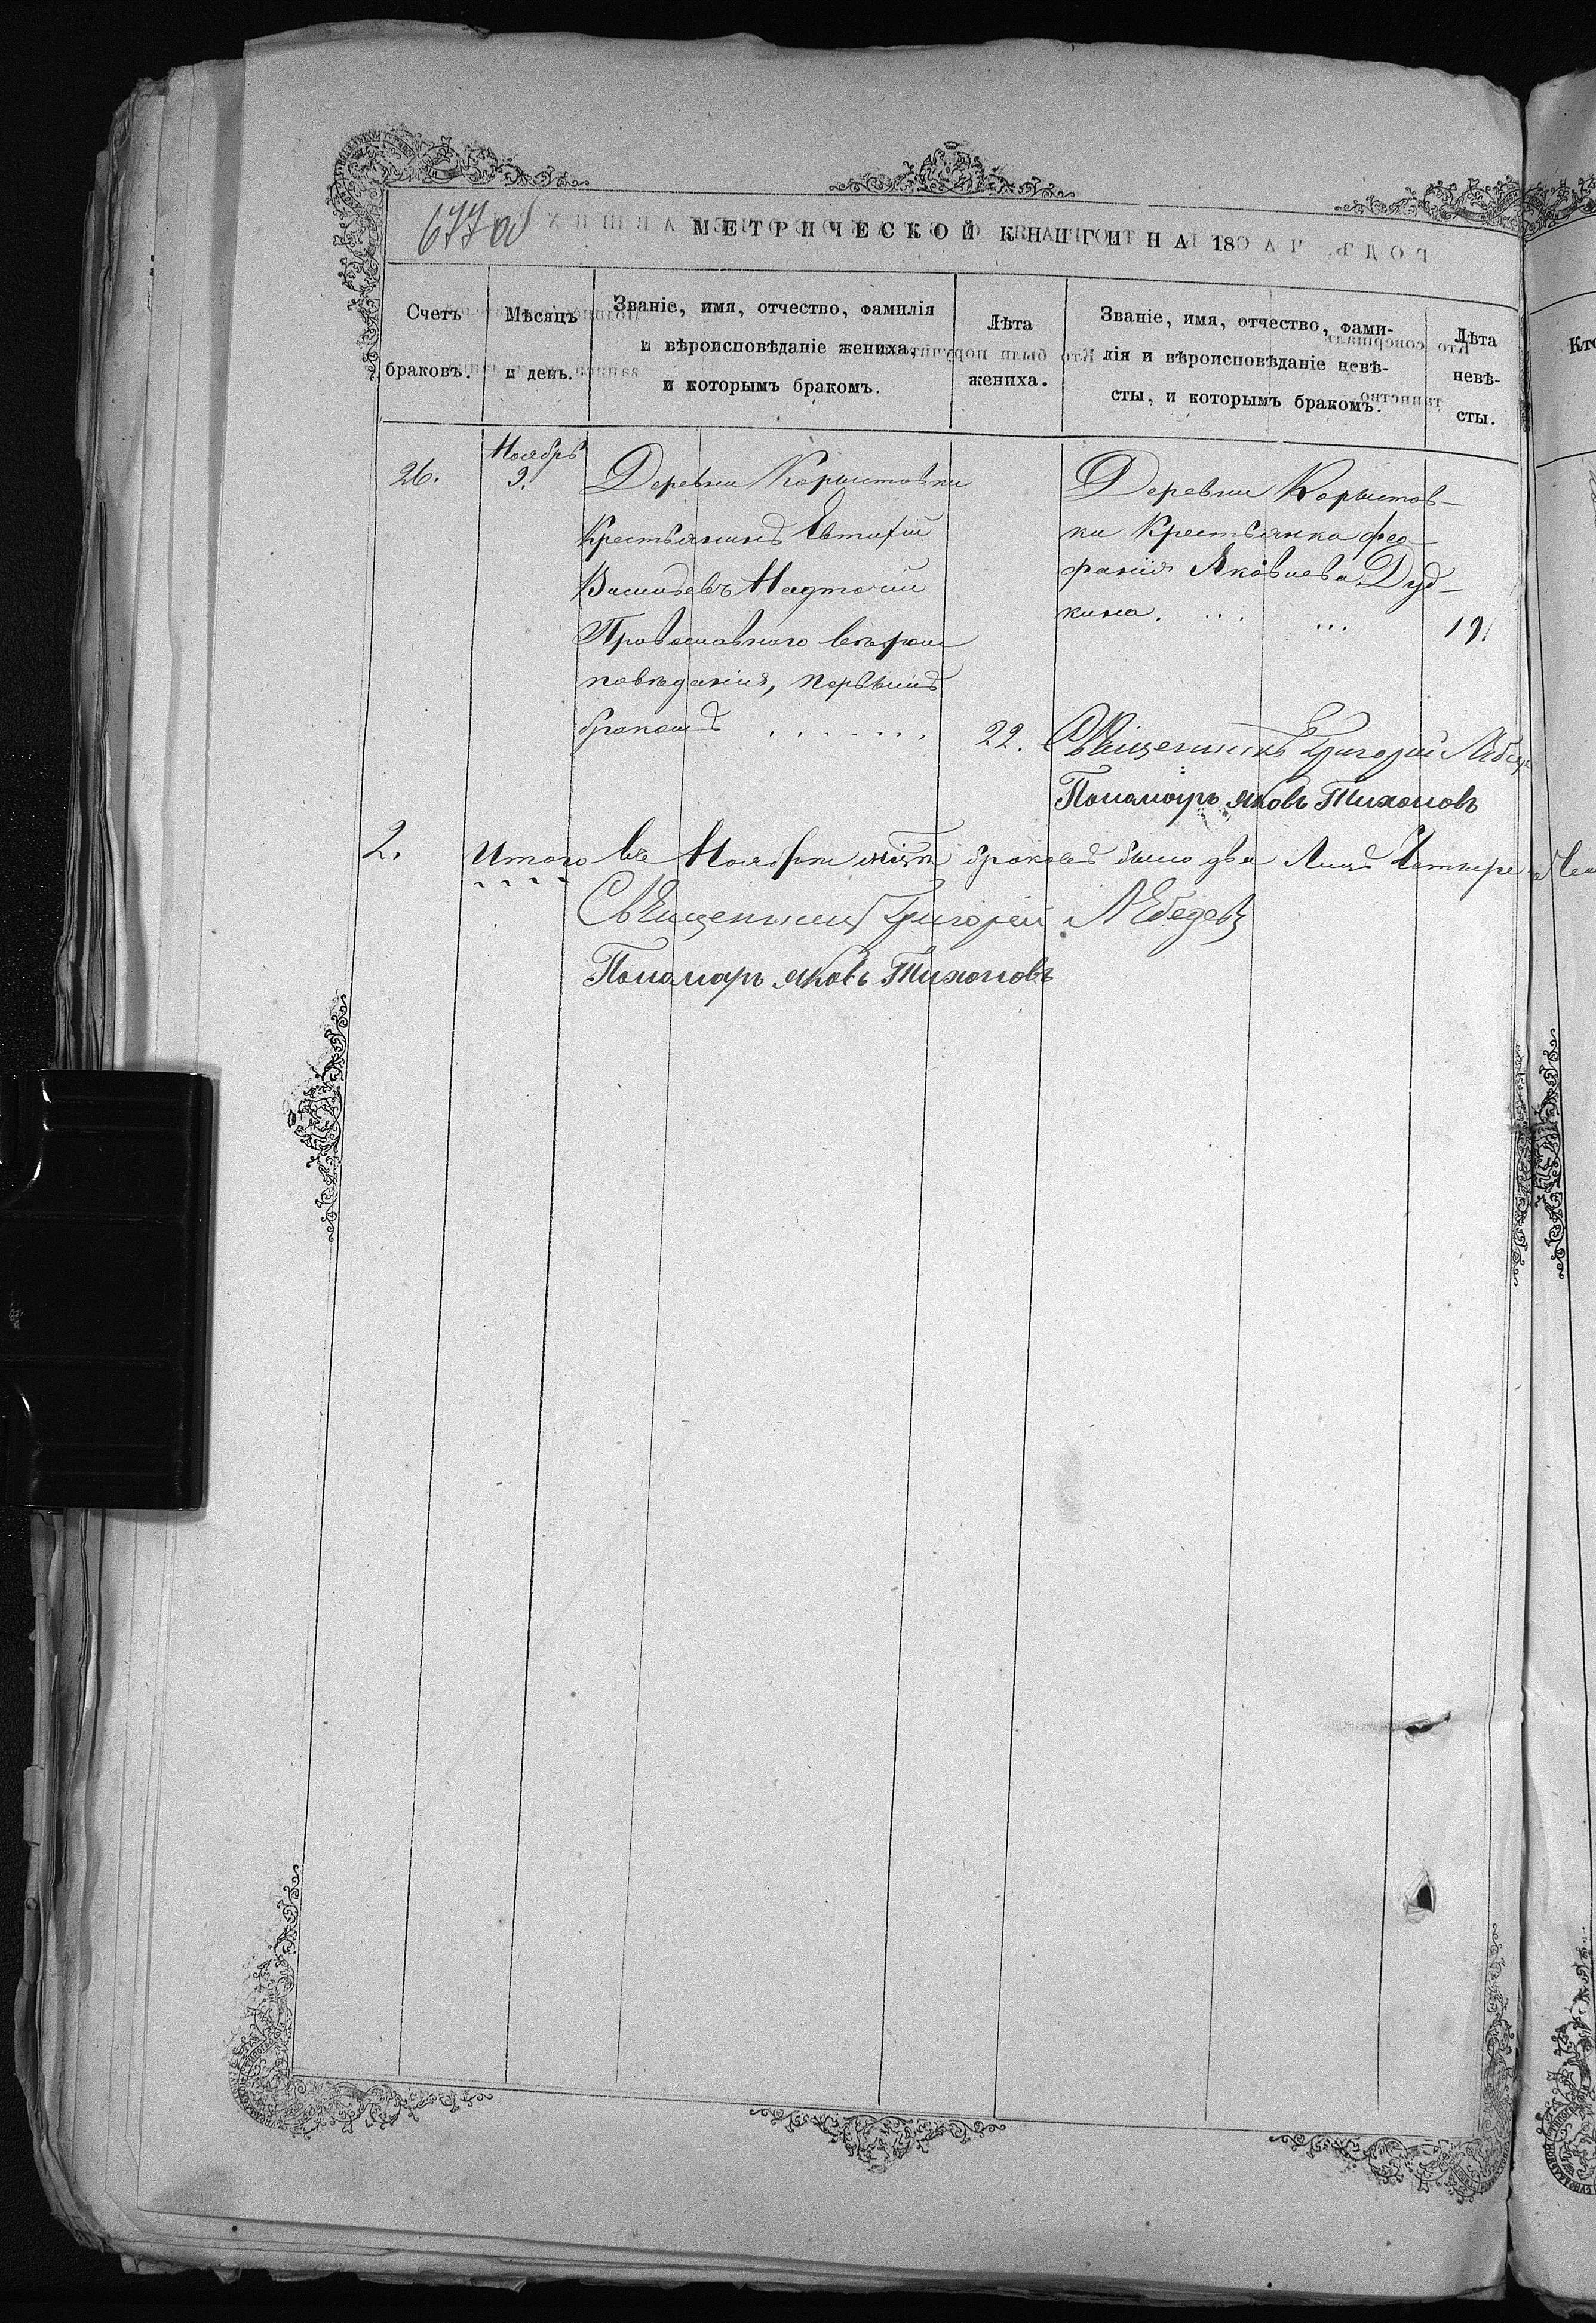 677об
МЕТРИЧЕСКОЙ КНИГИ НА 18
Счетъ браковъ.
Мѣсяцъ и день.
Званіе, имя, отчество, фамилія
и вѣроисповѣданіе жениха,
и которымъ бракомъ.
Лѣта
жениха.
Званіе, имя, отчество, фами-
лія и вѣроисповѣданіе невѣ-
сты, и которымъ бракомъ.
Лѣта
невѣ-
сты.
26.
Ноябрь
9.
Деревни Корыстовки
Крестьянинъ Евтифій
Васильевъ Надточій
Православнаго вѣроис
повѣданія, первымъ
бракомъ . . . . . . .
22.
Деревни Корыстов-
ки Крестьянка Фео-
фанія Яковлева Дуд-
кина. ... ...
19.
Священникъ Григорій
Пономарь Яковъ Тихоновъ
2.
Итого въ Ноябрѣ мцѣ браковъ было два Лицъ Четыре
Священникъ Григорій Лебедевъ
Пономарь Яковъ Тихоновъ
Кто